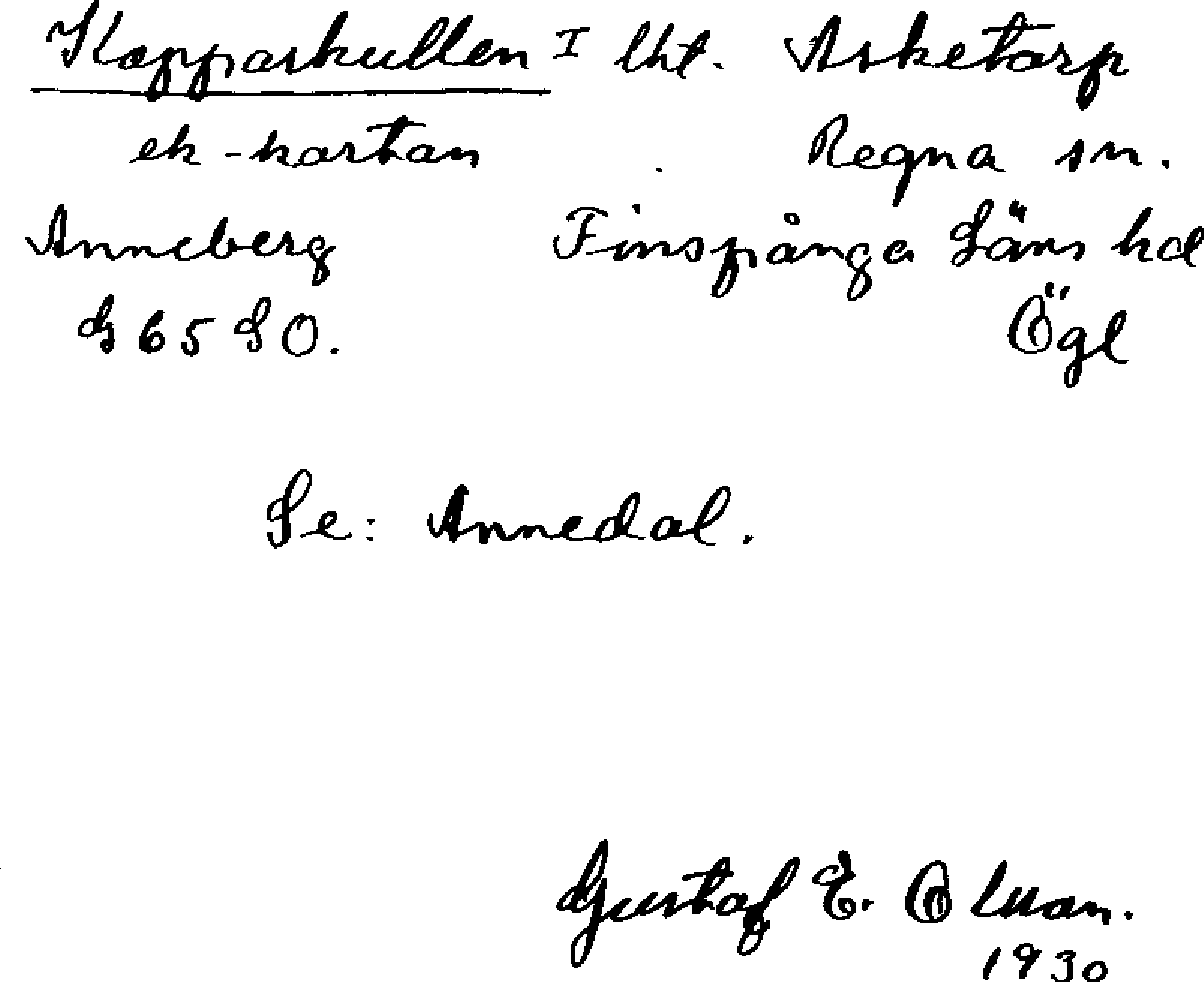 Kopparkullen I lht. Asketorp
ek-kartan Regna sn.
Anneberg Finspånga Läns hd
G 65 SO. Ögl
Se: Annedal.
Gustaf E.
1930